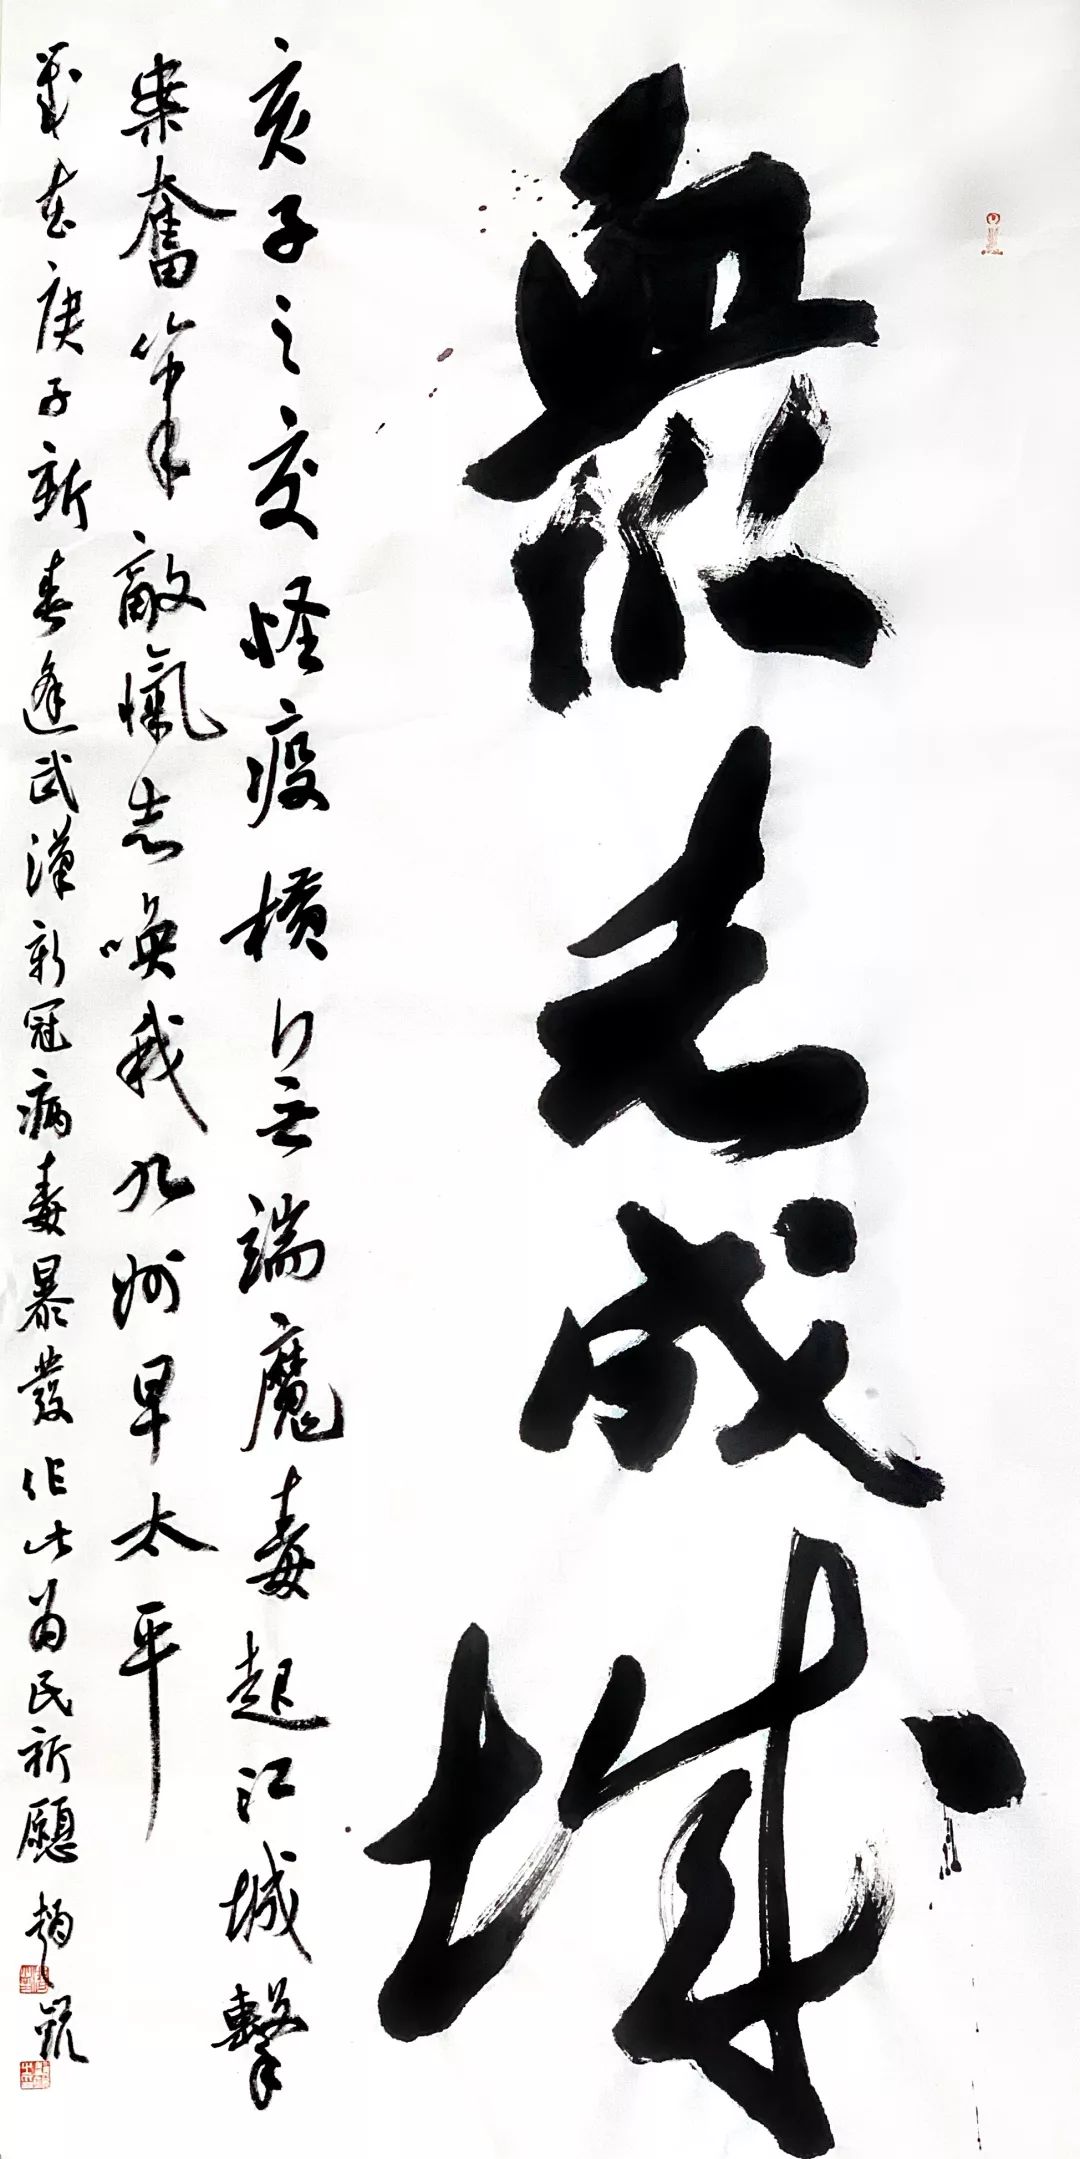 衆志成城
亥子之交怪疫橫行无端魔毒起江城擊
案奮筆敵愾志喚我九州早太平
歲在庚子新春逢武漢新冠病毒暴發作此為民祈願